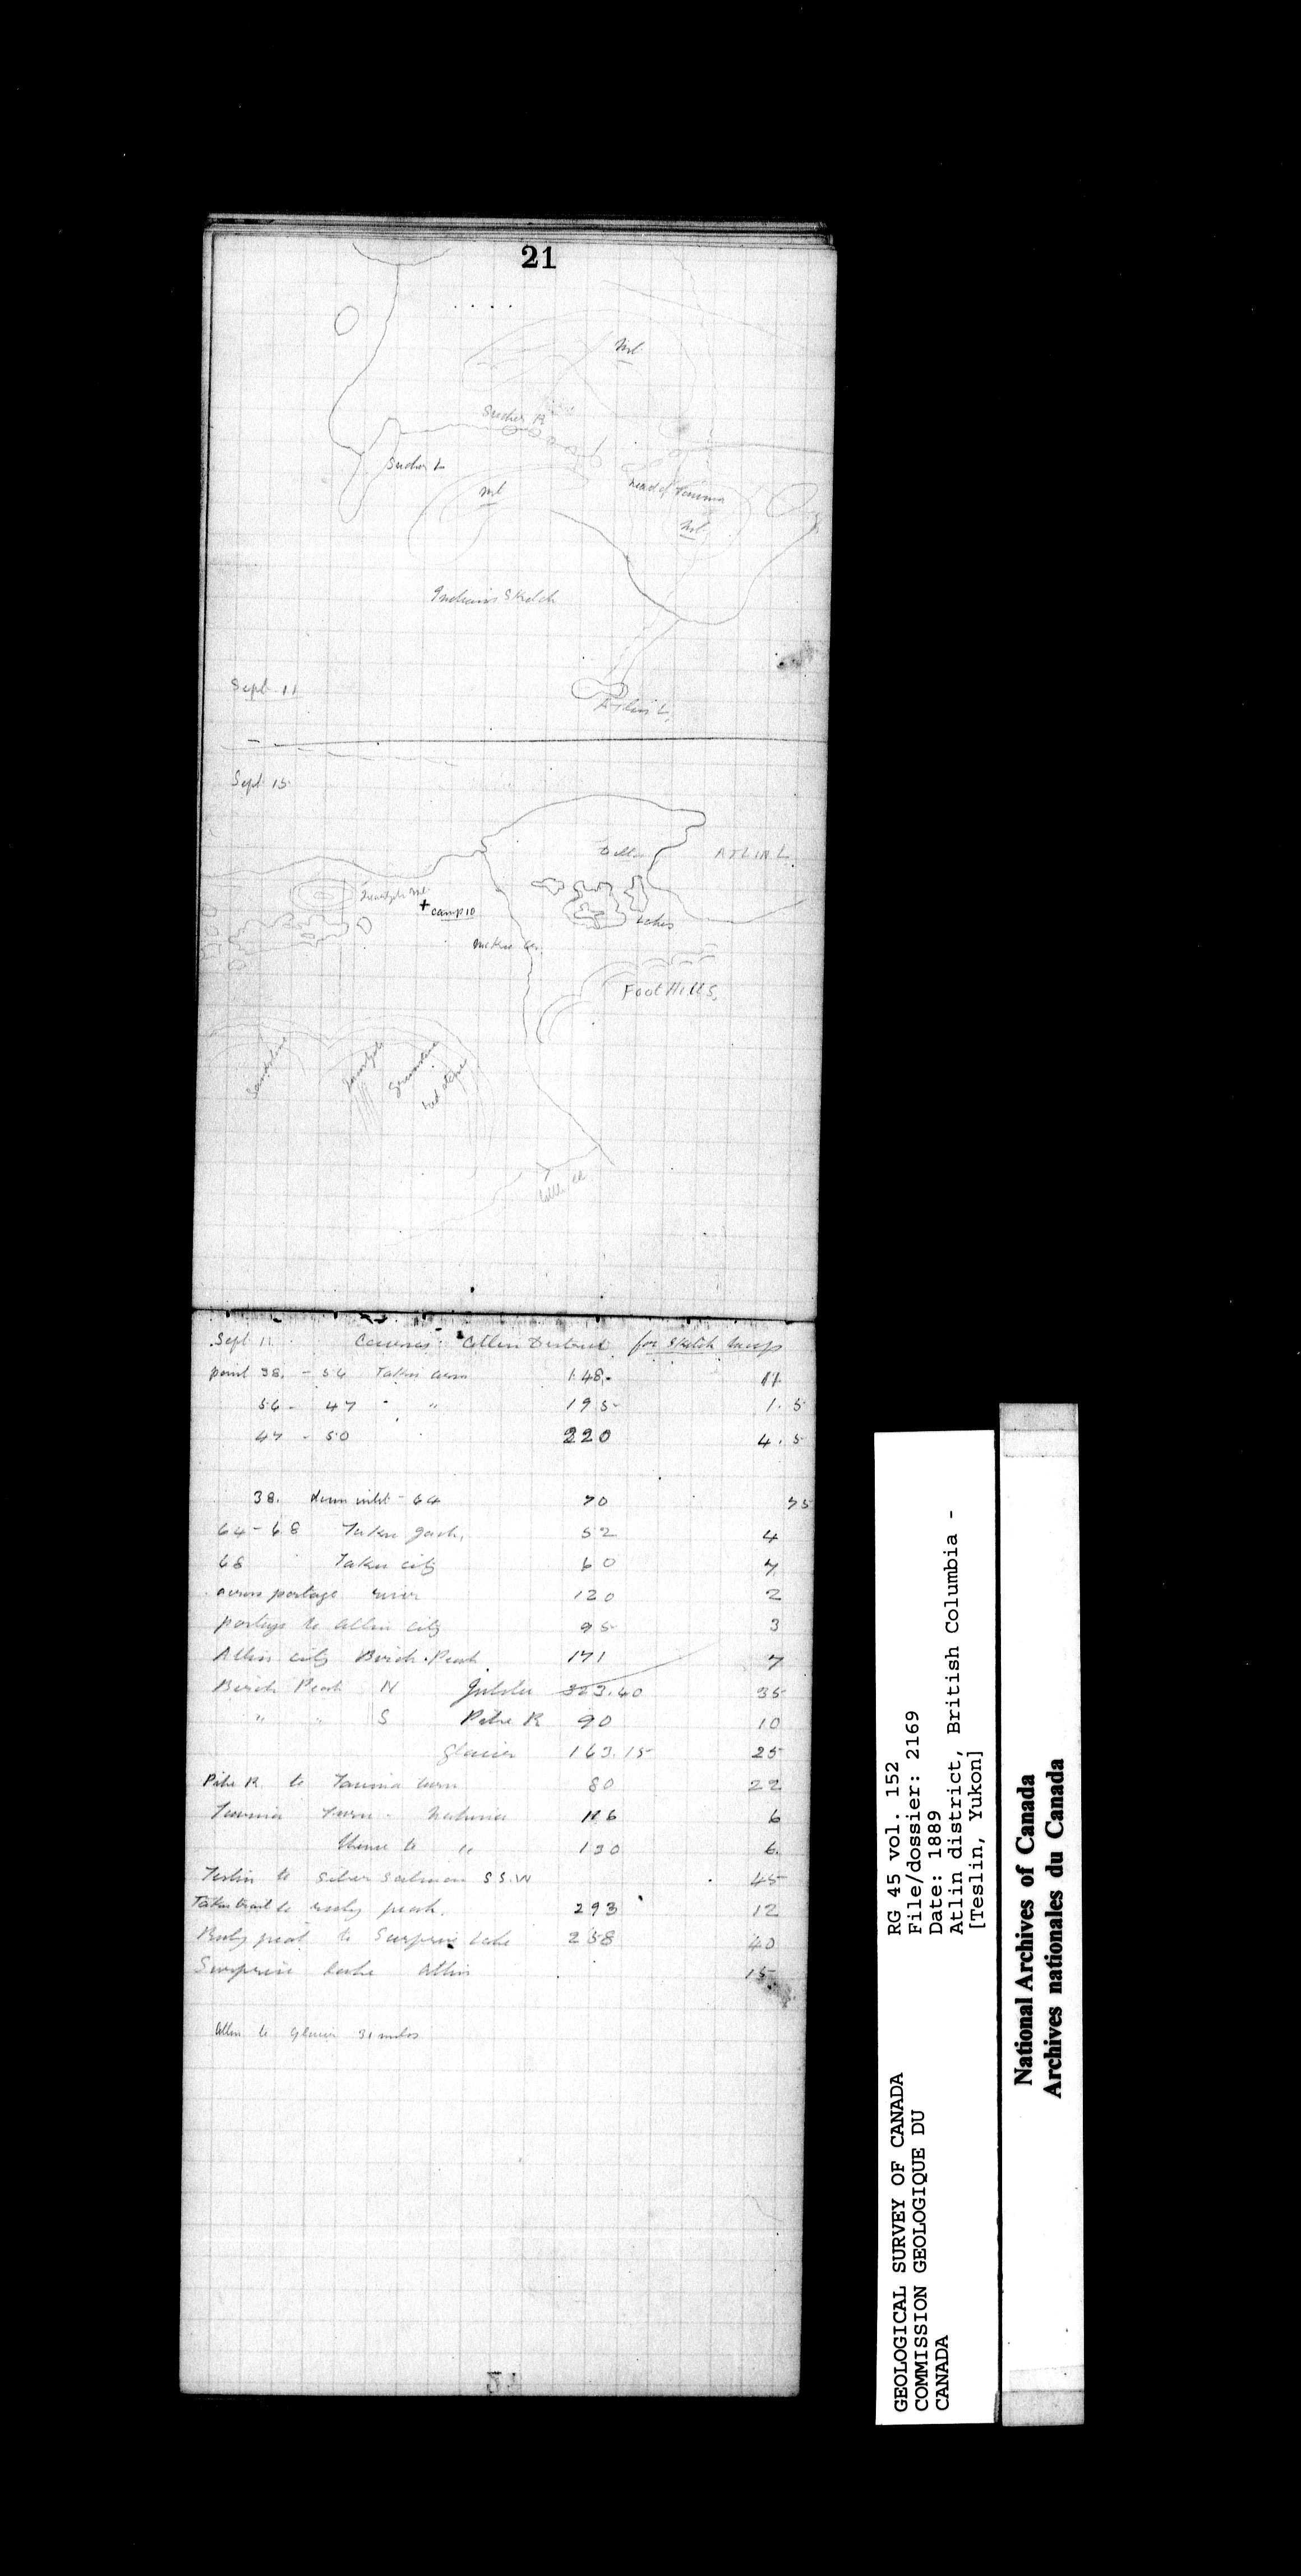 21
Mt.
Sucker R
Sucker L
Mt
head of
Mt.
Indians Sketch
Sept 11
Atlin L.
Sept 15
ATLIN L.
Mt.
+ camp 10
Lakes
McKee Cr.
Foot Hills.
Sandstone
Greenstone
red slopes
Sept 11 Atlin District for sketch maps
point 38. - 56 Taku arm 148. 11
56 - 47 " " 195 1.5
47 - 50 220 4.5
38. down inlet - 64 70 75
64 - 68 Taku 52 4
68 Taku city 60 7
across portage river 120 2
portage to Atlin city 95 3
Atlin city Birch Peak 171 7
Birch Peak N 40 35
" " S Pike R 90 10
glacier 163.15 25
Pike R to 80 22
6
thence to " 130 6.
Teslin to silver salmon S.S.W 45
Taku trail to ruby peak. 293 12
Ruby peak to Surprise Lake 258 40
Surprise lake Atlin 15
Atlin to glacier 31 miles
GEOLOGICAL SURVEY OF CANADA
COMMISSION GEOLOGIQUE DU
CANADA
RG 45 vol. 152
File/dossier: 2169
Date: 1889
Atlin district, British Columbia -
[Teslin, Yukon]
National Archives of Canada
Archives nationales du Canada